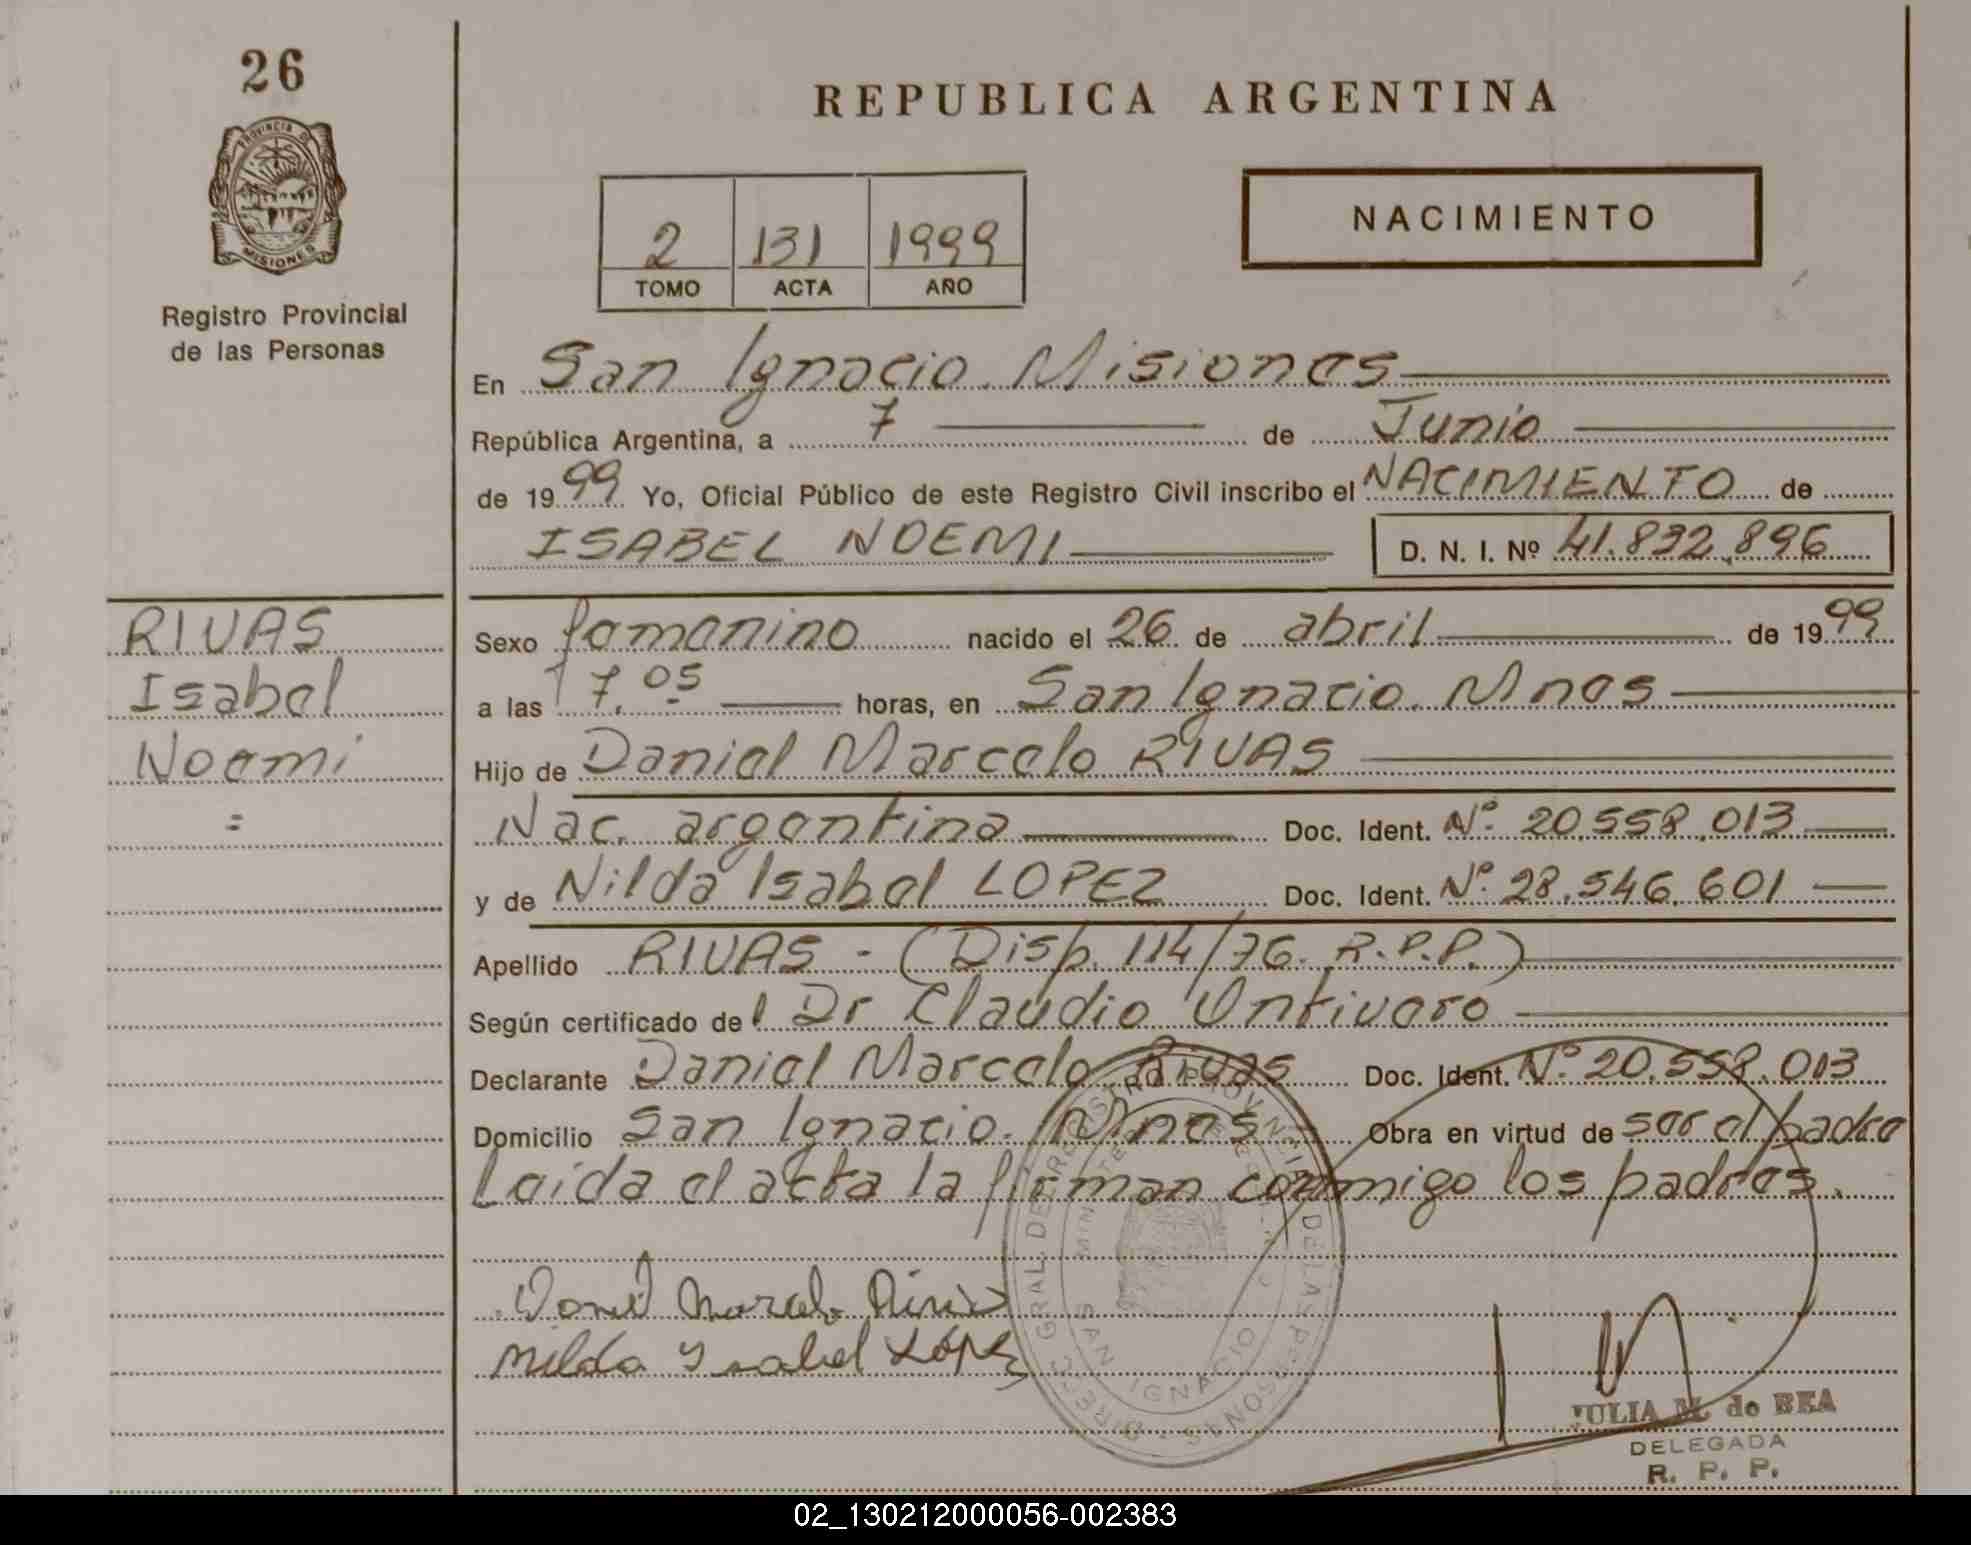 26
REPUBLICA ARGENTINA
PROVINCIA DE
MISIONES
Registro Provincial
de las Personas
2 131 1999
TOMO ACTA AÑO
NACIMIENTO
En San Ignacio. Misiones
República Argentina, a 7 de Junio
de 1999 Yo, Oficial Público de este Registro Civil inscribo el NACIMIENTO de
ISABEL NOEMI D. N. I. Nº 41.832.896
RIVAS
Isabel
Noemi
=
Sexo femenino nacido el 26 de abril de 1999
a las 7.05 horas, en San Ignacio. Mnes
Hijo de Daniel Marcelo RIVAS
Nac. argentina Doc. Ident. Nº 20.558.013
y de Nilda Isabel LOPEZ Doc. Ident. Nº 28.546.601
Apellido RIVAS - (Disp. 114/76. R.P.P.)
Según certificado del Dr Claudio Ontivero
Declarante Daniel Marcelo Rivas Doc. Ident. Nº 20.558.013
Domicilio San Ignacio. Mnes Obra en virtud de ser el padre
Leida el acta la firman conmigo los padres.
Daniel Marcelo Rivas
Nilda Ysabel López
DIRECC. GRAL. DE REGISTRO PROVINCIAL DE LAS PERSONAS
SAN IGNACIO
JULIA M. de BEA
DELEGADA
R. P. P.
02_130212000056-002383